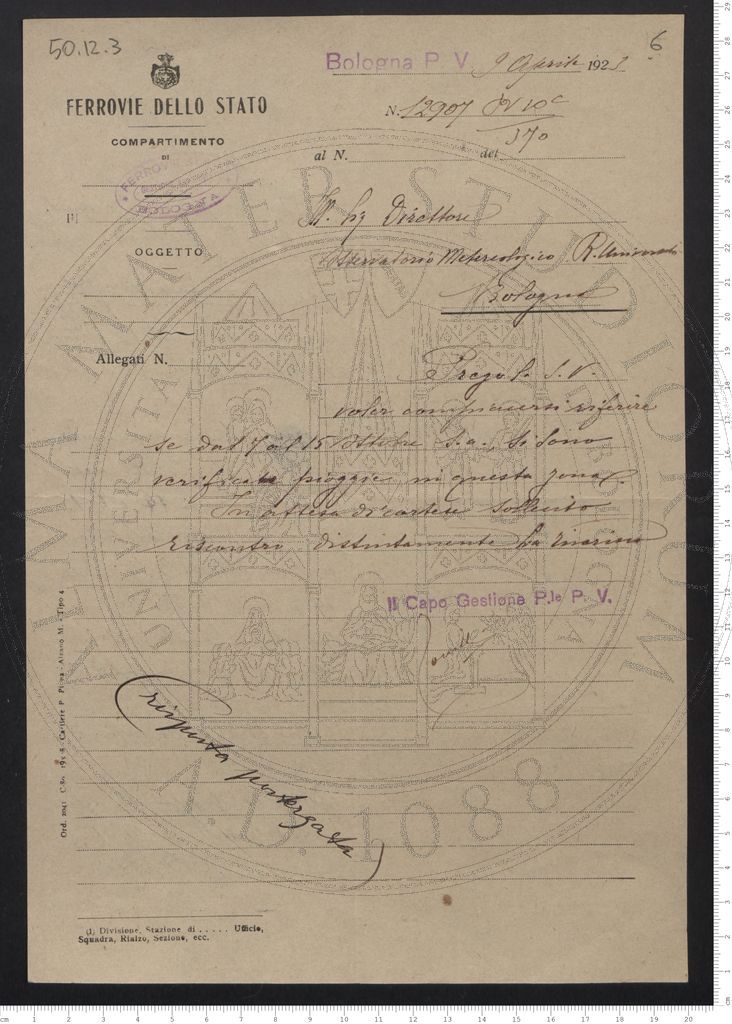 50.12.3
6
Bologna P. V. 9 Aprile 1923
FERROVIE DELLO STATO
N. 12907 PV 10c
370
COMPARTIMENTO
DI
al N. del
BOLOGNA
Ill. Sig Direttore
[1]
OGGETTO
Osservatorio Metereologico R. Università
Bologna
Allegati N.
Prego la S.V.
voler compiacersi riferire
se dal 7 al 15 Ottobre s.a. si sono
verificate pioggie in questa zona.
In attesa di cortese sollecito
riscontro distintamente La riverisco
Il Capo Gestione P.le P. V.
(risposta postergata)
ALMA MATER STUDIORUM
A.D. 1088
(1) Divisione, Stazione di ..... Ufficio,
Squadra, Rialzo, Sezione, ecc.